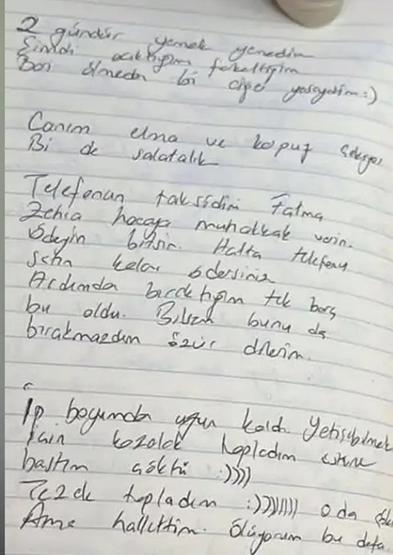 2 gündür yemek yemedim
Şimdi acıktığım farkettim
Bari ölmeden bi ciğer yeseydim :)
Canım elma ve karpuz çekiyor
Bi de salatalık
Telefonun taksidini Fatma
Zehra hocaya muhakkak verin.
Ödeyin bitsin. Hatta telefonu
satın kalanı ödersiniz
Ardımda bıraktığım tek borç
bu oldu. Bilsem bunu da
bırakmazdım özür dilerim.
İp boyumdan uzun kaldı yetişebilmek
için kozalak topladım üstüne
bastım çöktü :))))
Tezek topladım :))))))) o da
Ama hallettim. Ölüyorum bu defa